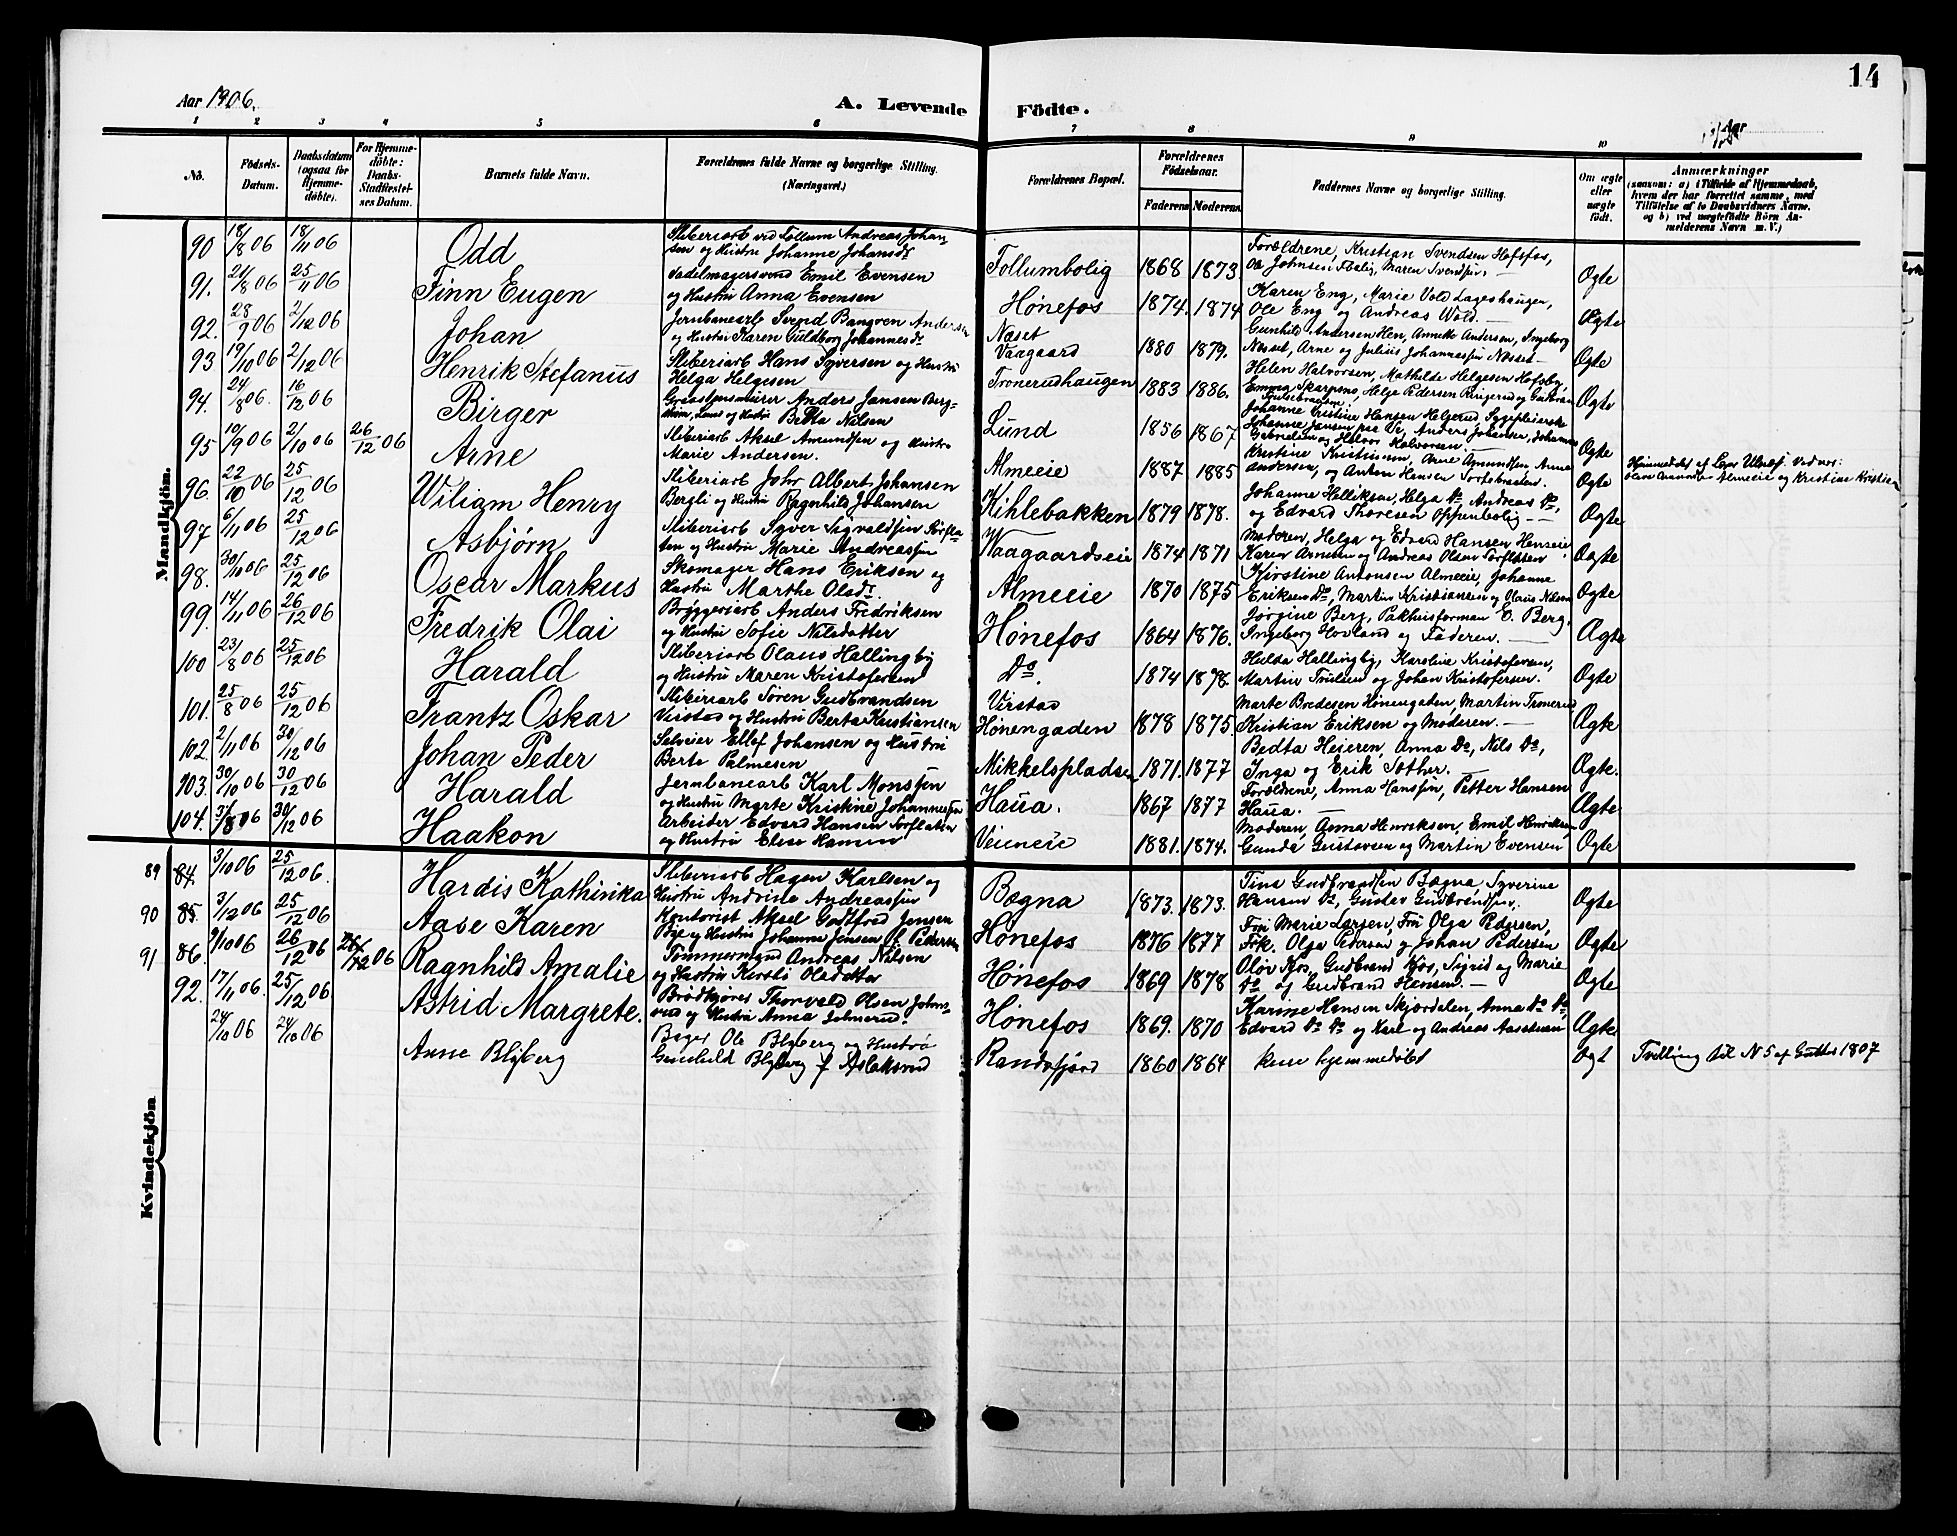 14
Aar 1906.
A. Levende Födte.
Aar
1 2 3 4 5 6 7 8 9 10
No.
Födsels-Datum.
Daabsdatum (ogsaa for Hjemme-döbte).
For Hjemme-döbte: Daabs-Stadfæstel-ses Datum.
Barnets fulde Navn.
Forældrenes fulde Navne og borgerlige Stilling. (Næringsvei.)
Forældrenes Bopæl.
Forældrenes Födselsaar.
Faderens Moderens
Faddernes Navne og borgerlige Stilling.
Om ægte eller uægte födt.
Anmærkninger
(saasom: a) i Tilfælde af Hjemmedaab, hvem der har forrettet samme, med Tilföielse af to Daabsvidners Navne. og b) ved uægtefödte Börn An-melderens Navn m. V.)
Mandkjön.
90 18/8 06 18/11 06 Odd
Sliberiarb ved Follum Andreas Johan
sen og Hustru Johanne Johansdr
Follumbolig 1868 1873
Forældrene, Kristian Svendsen Hofsfos,
Ole Johnsen Maren Svendsen. Ægte
91. 21/8 06 25/11 06 Finn Eugen
Sadelmagersvend Emil Evensen
og Hustru Anna Evensen
Hønefos 1874. 1874
Karen Eng, Marie Vold Lageshaugen,
Ole Eng og Andreas Wold. Ægte
92. 28/9 06 2/12 06 Johan
Jernbanearb Svend Bangven Andersen
og Hustru Karen Guldborg Johannesdr
Næset Vaagaard 1880 1879.
Gunhild Andersen Hen, Annette Andersen, Ingeborg
Næsset, Arne og Julius Johannessen Næsset Ægte
93 19/10 06 2/12 06 Henrik Stefanus
Sliberiarb Hans Syversen og Hustru
Helga Helgesen
Tronerudhaugen 1883 1886.
Helen Halvorsen, Mathilde Helgesen Hofsby,
Emma Skarpsno, Helge Pedersen Ringerud og Ægte
94. 24/8 06. 16/12 06 Birger
Graastensmurer Anders Jansen Berg-
Lund og Hustru Betta Nilsen
Lund 1856 1867
Johanne Cristine Hansen Helgerud, Sygepleierske
Johanne Jansen Anders Johansen, Johannes
Gabrielsen og Halvor Halvorsen. Ægte
95 10/9 06 21/10 06 26/12 06 Arne
Sliberiarb Aksel Amundsen og Hustru
Marie Andersen.
Almeeie 1887 1885
Kristine Kristiansen, Arne Amundsen, Anne
Andersen, og Anton Hansen Ægte
Hjemmedøbt af Vidner:
Almeeie og Kristine Kristiansen
96. 22/10 06 25/12 06 Wiliam Henry
Sliberiarb John Albert Johansen
Bergli og Hustru Ragnhild Johansen
Kihlebakken 1879 1878.
Johanne Helliksen, Helga Do, Andreas Do,
og Edvard Thoresen Oppenbolig Ægte
97 6/11 06 25/12 06 Asbjørn
Sliberiarb Syver Sigvaldsen Sørfla-
ten og Hustru Marie Andreassen
Vaagaardseie 1874 1871
Moderen, Helga og Edvard Hansen Henseie,
Karen Arnesen og Andreas Olsen Sørflatten Ægte
98. 30/10 06 25/12 06 Oscar Markus
Skomager Hans Eriksen og
Hustru Marthe Olsdr.
Almeeie 1870 1875
Kirstine Antonsen Almeeie, Johanne
Eriksen Do, Martin Kristiansen og Olaus Nilsen Ægte
99. 14/11 06 26/12 06 Fredrik Olai
Bryggeriarb Anders Fredriksen
og Hustru Sofie Nilsdatter
Hønefos 1864 1876.
Jørgine Berg, Pakhusforman E. Berg,
Ingeborg Hovland og Faderen. Ægte
100 23/8 06 25/12 06 Harald
Sliberiarb Olaus Hallingby
og Hustru Maren Kristofersen
Do. 1874 1878.
Hulda Hallingby, Karoline Kristofersen,
Martin Trulsen og Johan Kristofersen. Ægte
101. 25/8 06 25/12 06 Frantz Oskar
Sliberiarb Søren Gudbrandsen
Virstad og Hustru Berta Kristiansen
Virstad Hønengaden 1878 1875
Marte Bredesen Hønengaden, Martin Tronerud
Kristian Eriksen og Moderen. Ægte
102. 2/11 06 30/12 06 Johan Peder
Selveier Ellef Johansen og Hustru
Berte Palmesen
Mikkelspladsen 1871. 1877
Bedta Heieren, Anna Do, Nils Do,
Inga og Erik Sæther. Ægte.
103. 30/10 06 30/12 06 Harald
Jernbanearb Karl Monssen
og Hustru Marte Kristine Johannessen
Haua. 1867 1877
Forældrene, Anna Hanssen, Petter Hansen
Haua. Ægte
104. 31/8 06 30/12 06 Haakon
Arbeider Edvard Hansen Sørflaten
og Hustru Elise Hansen
Veieneie 1881. 1874.
Moderen, Anna Henriksen, Emil Henriksen
Gunda Gustavsen og Martin Evensen Ægte
Kvindekjön
89 84. 3/10 06 25/12 06. Hardis Kathinka
Sliberiarb Hagen Karlsen og
Hustru Andrine Andreassen
Bægna 1873. 1873.
Tina Gudbrandsen Bægna, Syverine
Hansen Do, Gustav Gudbrandsen. Ægte
90 85. 3/12 06 25/12 06 Aase Karen
Kontorist Aksel Godtfred Jensen
Bye og Hustru Johanne Jensen f. Pedersen
Hønefos 1876 1877
Fru Marie Larsen, Fru Olga Pedersen,
Frk. Olga Pedersen og Johan Pedersen Ægte
91 86. 9/10 06 26/12 06 26/12 06 Ragnhild Amalie
Tømmermand Andreas Nilsen
og Hustru Kirsti Olsdatter
Hønefos 1869 1878
Oløv Kos, Gudbrand Kos, Sigrid og Marie
Do og Gudbrand Hensen. Ægte
92. 17/11 06. 25/12 06 Astrid Margrete.
Brødkjører Thorvald Olsen Johns-
rud og Hustru Anna Johnsrud.
Hønefos 1869. 1870
Karine Hansen Skjørdalen, Anna Do Do
Edvard Do Do og Karl og Andreas Aasetmoen Ægte
24/10 06 24/10 06 Anne Blyberg
Bager Ole Blyberg og Hustru
Gunhild Blyberg f Aslaksrud
Randsfjord 1860 1864
kun hjemmedøbt Ægt
Tvilling til N 5 af Gutter 1907